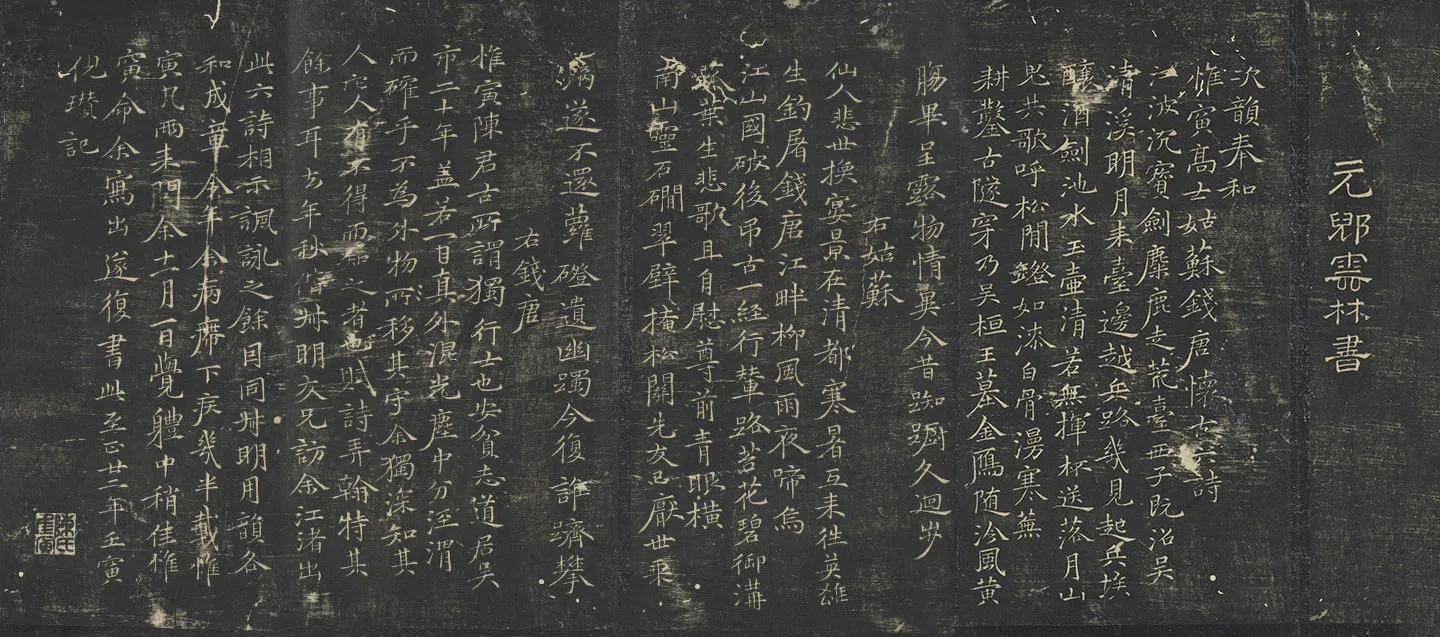 元郳雲林書
次韻奉和
惟寅高士姑蘇錢唐懷古六詩
江波沉寶劍麋鹿走荒臺西子既沼吳
清溪明月来臺邊越兵路幾見起兵埃
釀酒劍池水玉壷清若無揮杯送落月山
鬼共歌呼松間鐙如漆白骨漫寒蕪
耕鑿古隧穿乃吳桓王墓金鴈随泠風黄
膓畢呈露物情異今昔踟躕久迴步
右姑蘇
仙人悲世換宴景在清都寒暑互来徃英雄
生釣屠錢唐江畔柳風雨夜啼烏
江山國破後吊古一経行輦路苔花碧御溝
菰葉生悲歌且自慰尊前青眼橫
南山靈石磵翠壁掩松關先友已厭世乘
螭遂不還蘿磴遺幽躅今復許躋攀
右錢唐
惟寅陳君古所謂獨行士也安貧志道居吳
市二十年盖若一日真外混光塵中分涇渭
而確乎不為外物所移其守余獨深知其
人它人有不得而知之者也賦詩弄翰特其
餘事耳去年秋偕叔明友兄訪余江渚出
此六詩相示諷詠之餘因同叔明用韻各
和成章今年余病下疾幾半載惟
寅凡两来問余十一月一日覺體中稍佳惟
寅命余寫出遂復書此至正廿二年壬寅
倪瓚記